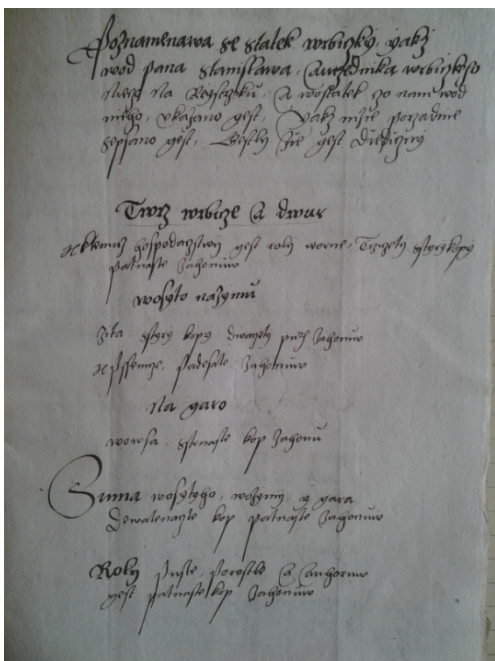 Poznamenawa se statek wrbiczky, yakz
wod pana Stanislawa, Aurzednika wrbiczkeho
na A wostatek zo nam wod
nieho, vkazano gest, yakz nize porzadnie
sepsano gest,
Twrz wrbicze A dwur
kterniz hospodarzstwij gest roly worne, Trziczeti sstyry kopy
patnaste zahonuw
wosyto nazymu
Zita sstyry kopy dwaczety piet zahonuw
Pssenicze, padesate zahonuw
Na garo
wowsa, sstrnaste kop zahonu
Suma wosyteho, wozymy, y gara
Dewatenayste kop patnaste zahonuw
Roly puste, porostle A
gest patnaste kop zahonuw